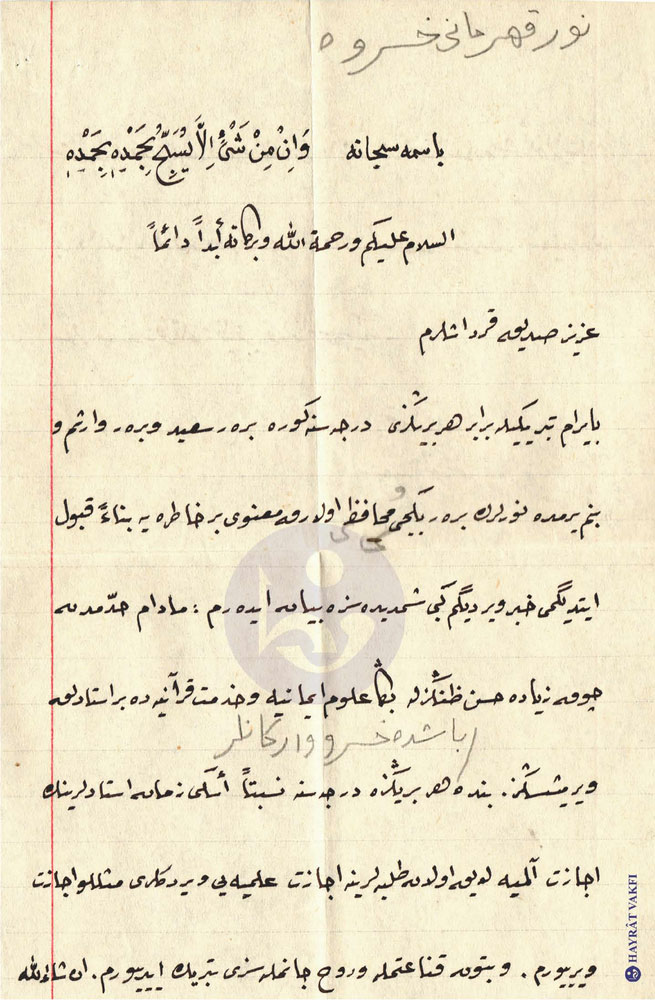 نور قهرمانی خسروه
باسمه سبحانه وَاِنْ مِنْ شَىْءٍ اِلَّا يُسَبِّحُ بِحَمْدِهٖ بِحَمْدِهٖ
السلام عليكم ورحمة الله وبركاته أبداً دائماً
عزیز صدیق قرداشلرم
بایرام تبریكیله برابر هر بریڭزی درجه سنه كوره برر سعید و برر وارثم و
بنم یرمده نورلرك برر بكجی و محافظی اولارق معنوی بر خاطره یه بناءً قبول
ایتدیگمی خبر ویردیگم كبی شمدیده سزه بیان ایده رم : مادام حدّمدن
چوق زیاده حسن ظنڭزله بڭا علوم ایمانیه و خدمت قرآنیه ده بر استادلق
باشده خسرو و اركانلر
ویرمشسڭز . بنده هر بریڭزه درجه سنه نسبتاً أسكی زمان استادلرینك
اجازت آلمیه لایق اولان طلبه لرینه اجازت علمیه یی ویردكلری مثللو اجازت
ویریورم . و بتون قناعتمله و روح جانمله سزی تبریك ایدیورم . ان شاء الله
HAYRÂT VAKFI